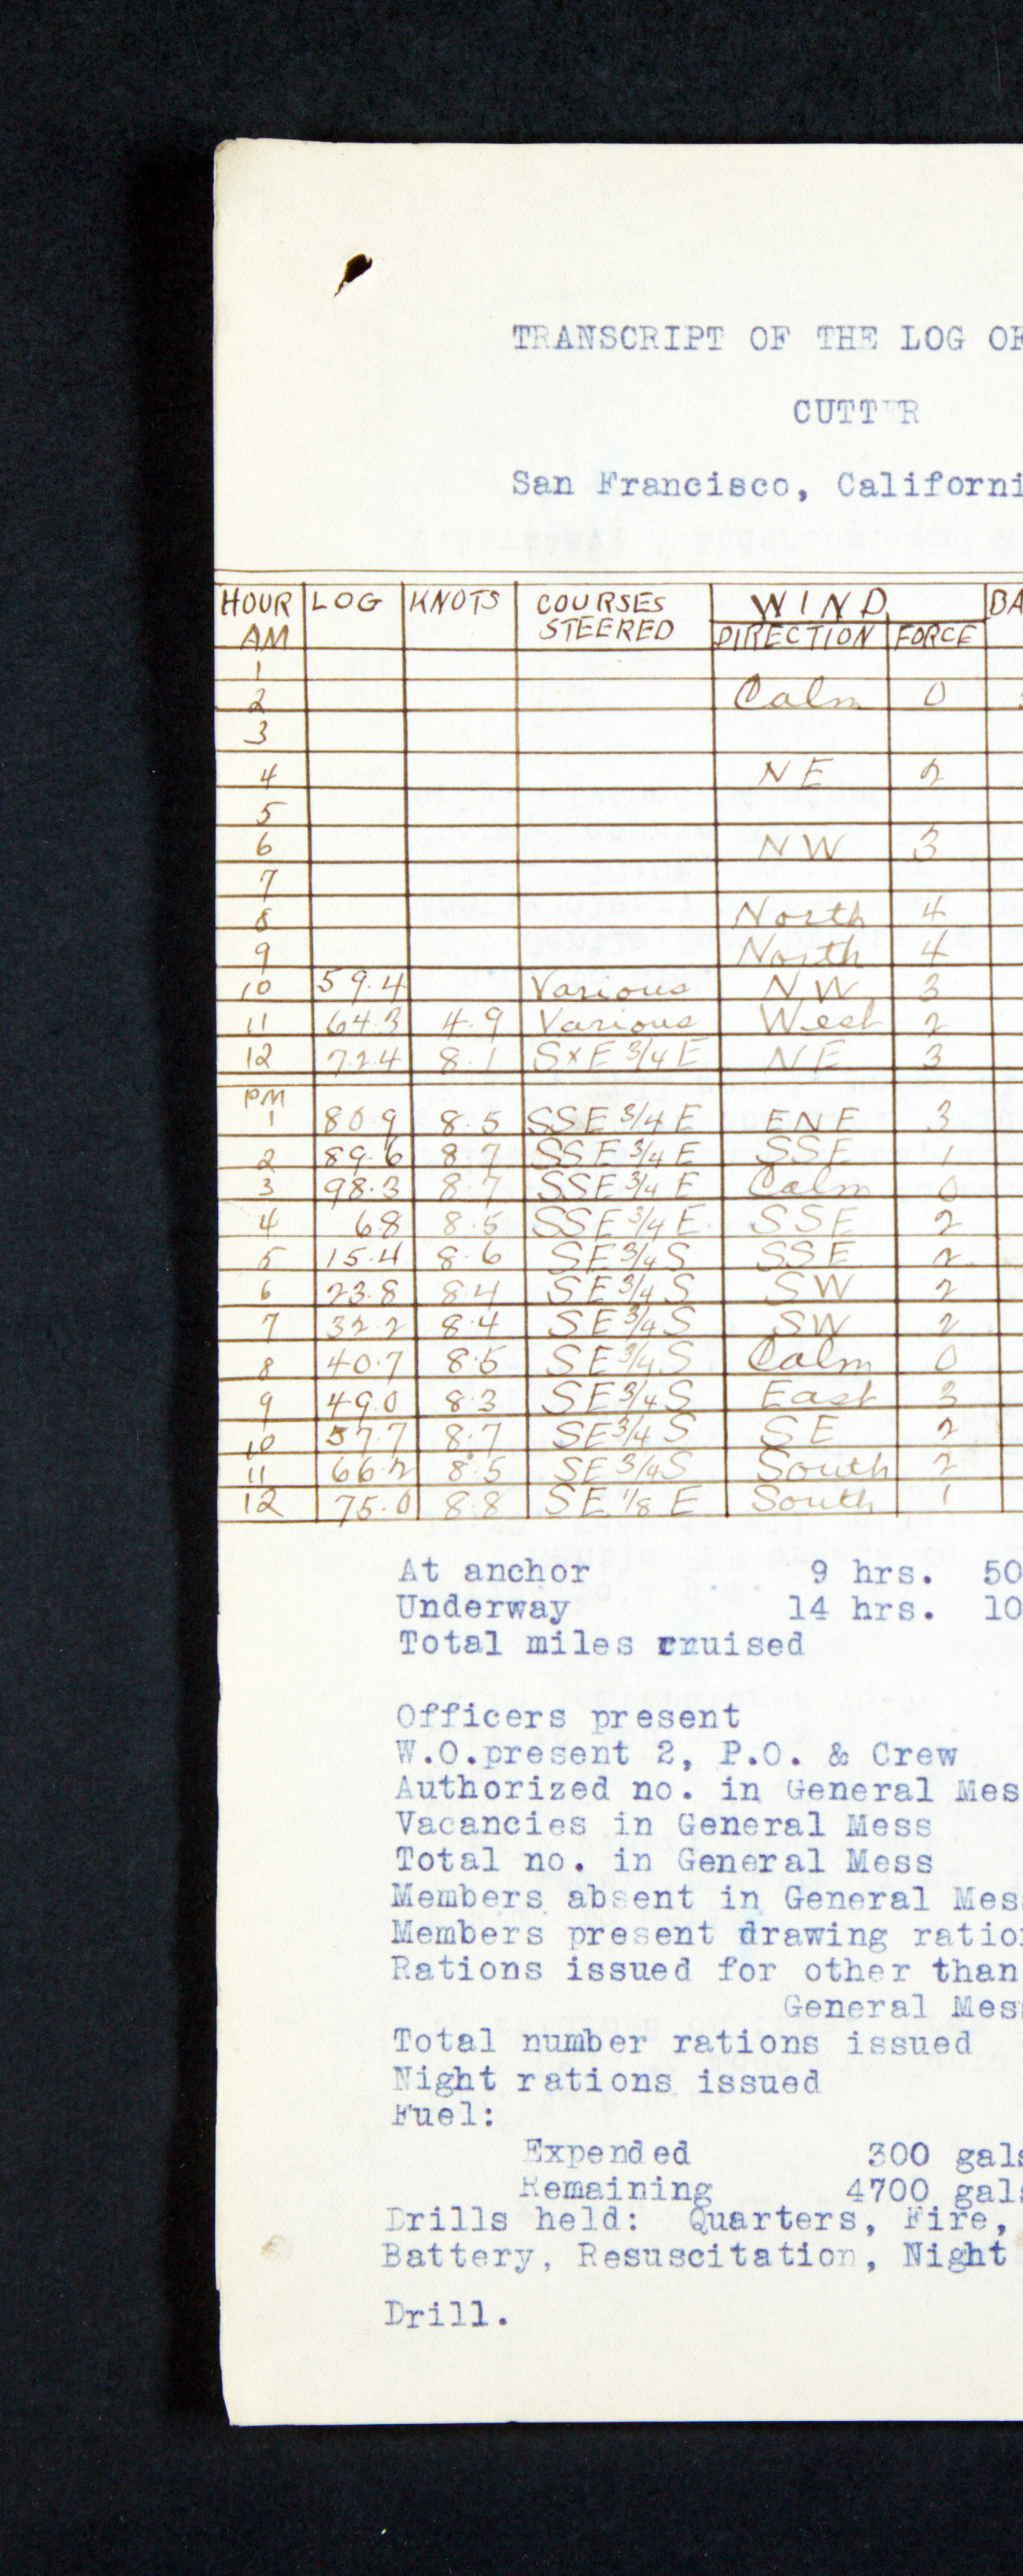 TRANSCRIPT OF THE LOG OF
CUTTER
San Francisco, Californi
HOUR LOG KNOTS COURSES STEERED WIND BA
AM DIRECTION FORCE
1
2 Calm 0
3
4 NE 2
5
6 NW 3
7
8 North 4
9 North 4
10 59.4 Various NW 3
11 64.3 4.9 Various West 2
12 72.4 8.1 SxE 3/4 E NE 3
PM
1 80.9 8.5 SSE 3/4 E ENE 3
2 89.6 8.7 SSE 3/4 E SSE 1
3 98.3 8.7 SSE 3/4 E Calm 0
4 6.8 8.5 SSE 3/4 E SSE 2
5 15.4 8.6 SE 3/4 S SSE 2
6 23.8 8.4 SE 3/4 S SW 2
7 32.2 8.4 SE 3/4 S SW 2
8 40.7 8.5 SE 3/4 S Calm 0
9 49.0 8.3 SE 3/4 S East 3
10 57.7 8.7 SE 3/4 S SE 2
11 66.2 8.5 SE 3/4 S South 2
12 75.0 8.8 SE 1/8 E South 1
At anchor 9 hrs. 50
Underway 14 hrs. 10
Total miles cruised
Officers present
W.O.present 2, P.O. & Crew
Authorized no. in General Mes
Vacancies in General Mess
Total no. in General Mess
Members absent in General Mess
Members present drawing ration
Rations issued for other than
General Mess
Total number rations issued
Night rations issued
Fuel:
Expended 300 gals
Remaining 4700 gals
Drills held: Quarters, Fire,
Battery, Resuscitation, Night
Drill.